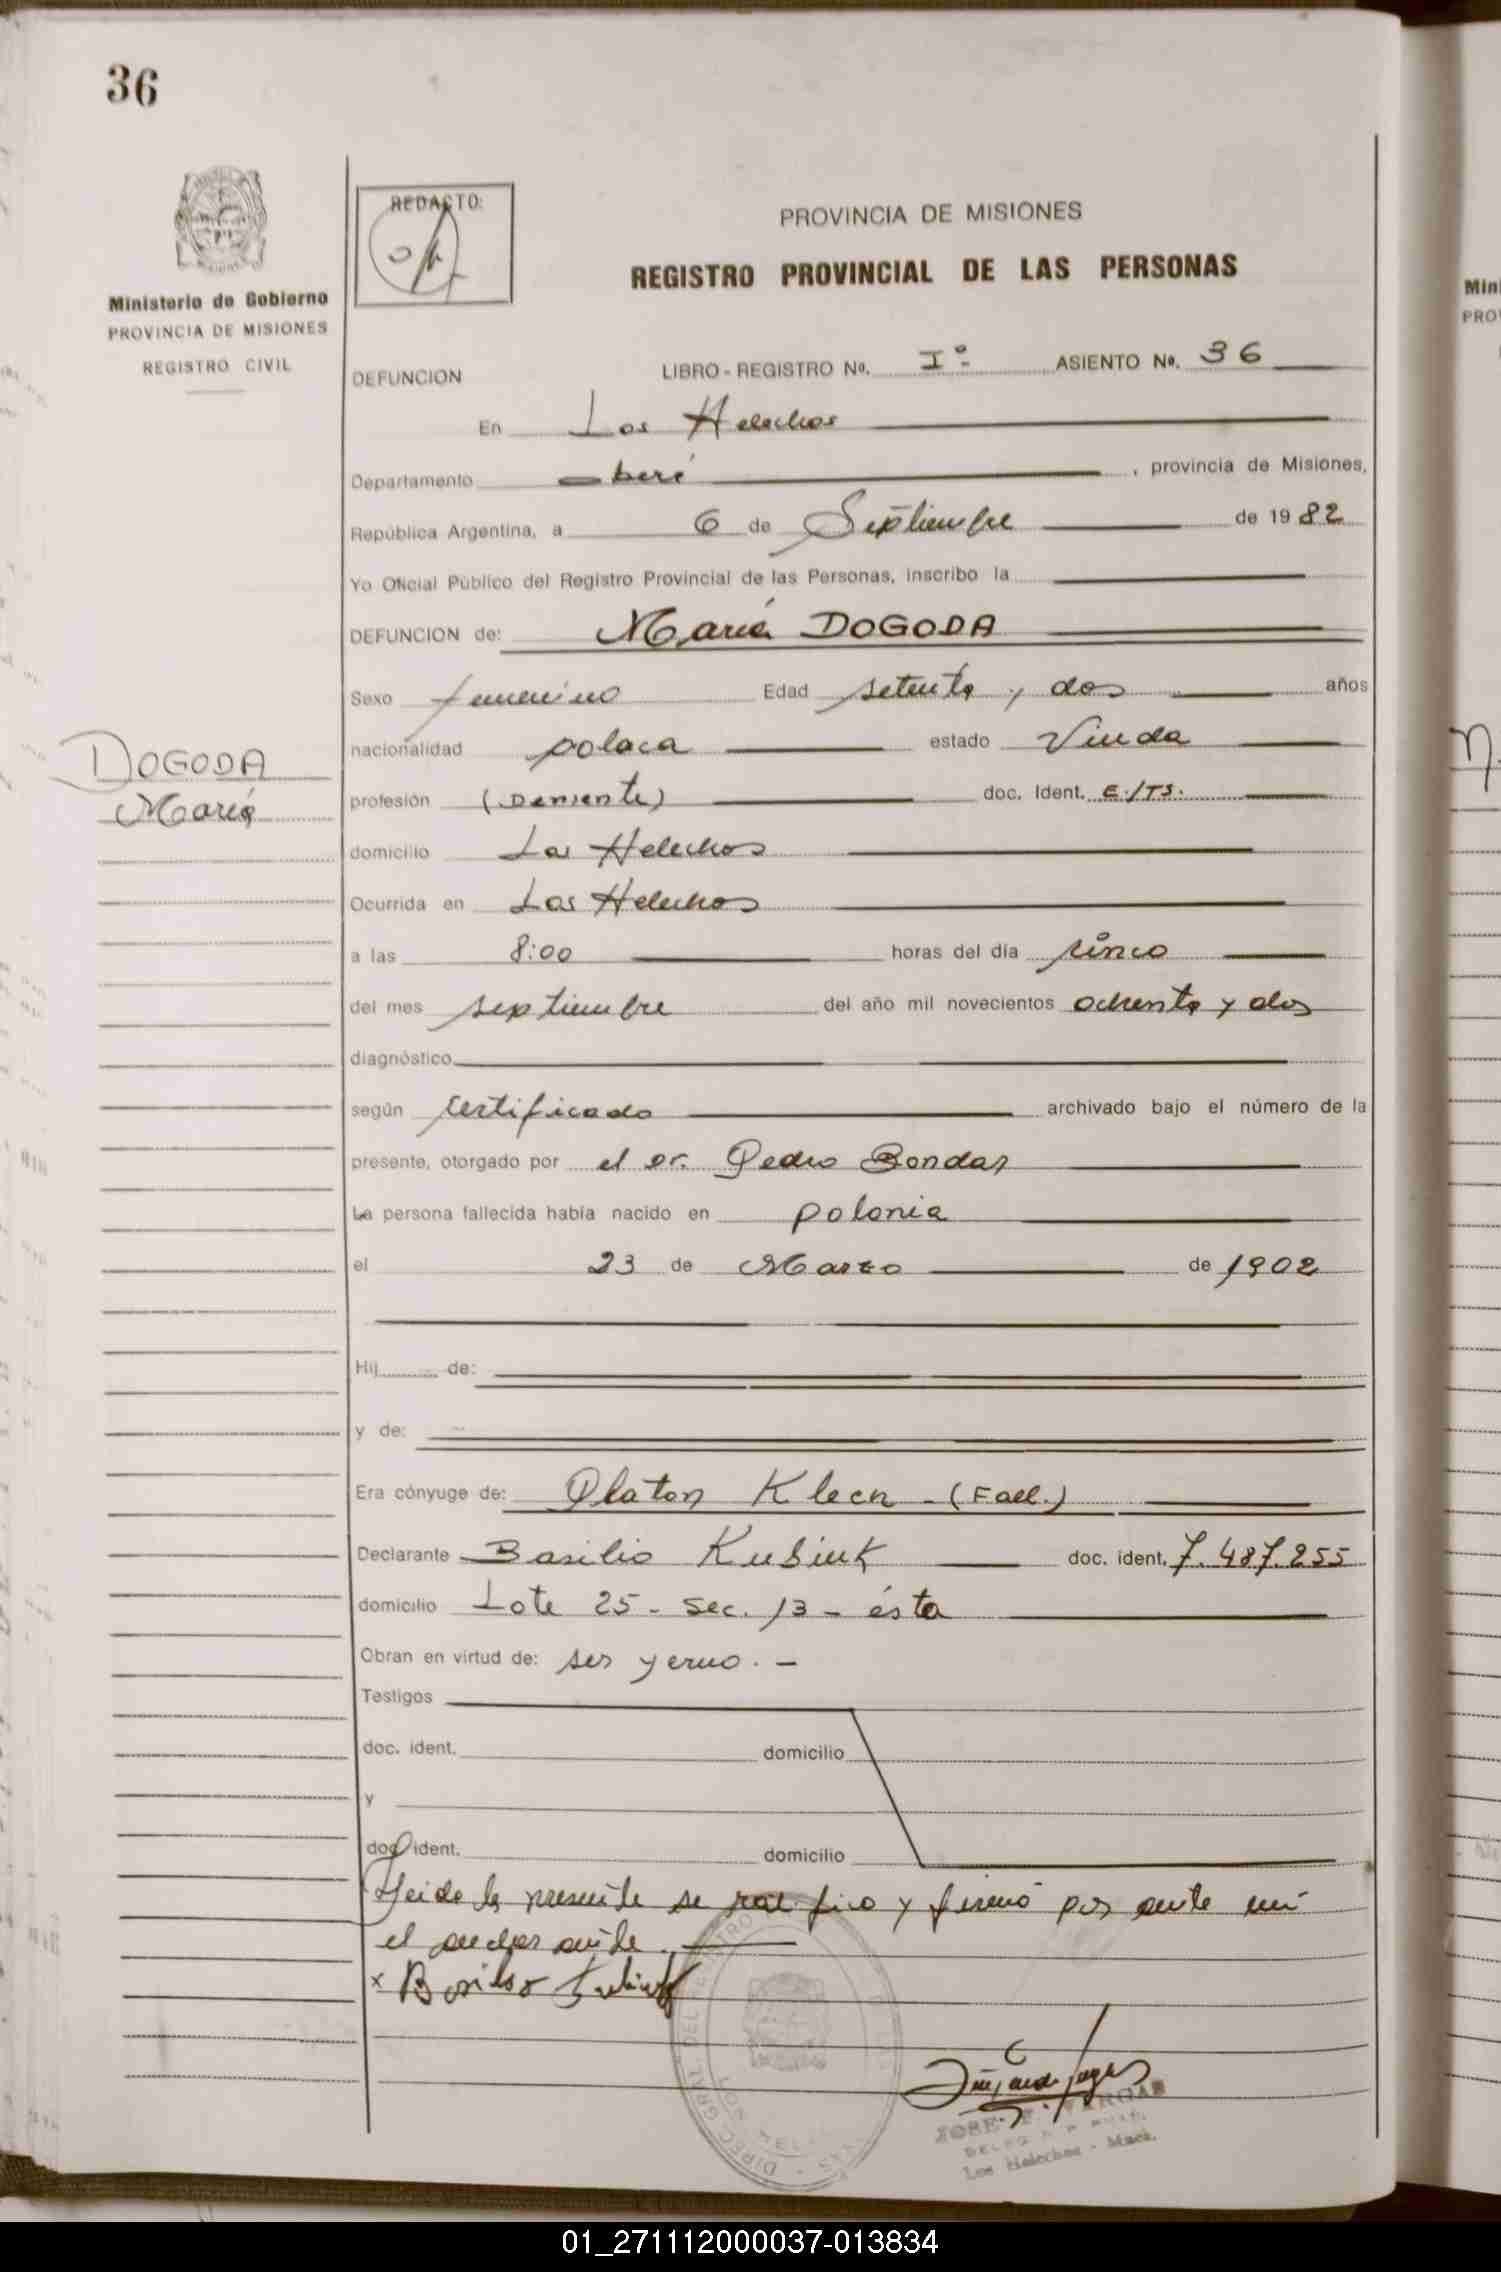 36
REDACTO:
PROVINCIA DE MISIONES
REGISTRO PROVINCIAL DE LAS PERSONAS
Ministerio de Gobierno
PROVINCIA DE MISIONES
REGISTRO CIVIL
DEFUNCION LIBRO - REGISTRO No. Iº- ASIENTO No. 36
En Los Helechos
Departamento Oberá, provincia de Misiones,
República Argentina, a 6 de Septiembre de 1982
Yo Oficial Público del Registro Provincial de las Personas, inscribo la
DEFUNCION de: María DOGODA
Sexo femenino Edad setenta y dos años
nacionalidad polaca estado Viuda
DOGODA
María
profesión (Demente) doc. Ident. E./TS.
domicilio Los Helechos
Ocurrida en Los Helechos
a las 8:00 horas del día sinco
del mes septiembre del año mil novecientos ochenta y dos
diagnóstico
según certificado archivado bajo el número de la
presente, otorgado por el Dr. Pedro Bondar
La persona fallecida había nacido en polonia
el 23 de Marzo de 1902
Hij de:
y de:
Era cónyuge de: Platon Klecn - (Fall.)
Declarante Basilio Kubiuk doc. ident. 7.487.255
domicilio Lote 25 - Sec. 13 - ésta
Obran en virtud de: ser yerno. -
Testigos
doc. ident. domicilio
y
doc. ident. domicilio
Leida la presente se ratifico y firmó por ante mí
el declarante.
x Basilio Kubiuk
JOSE F. VARGAS
Los Helechos - Mnes.
Mini
PRO
01_271112000037-013834